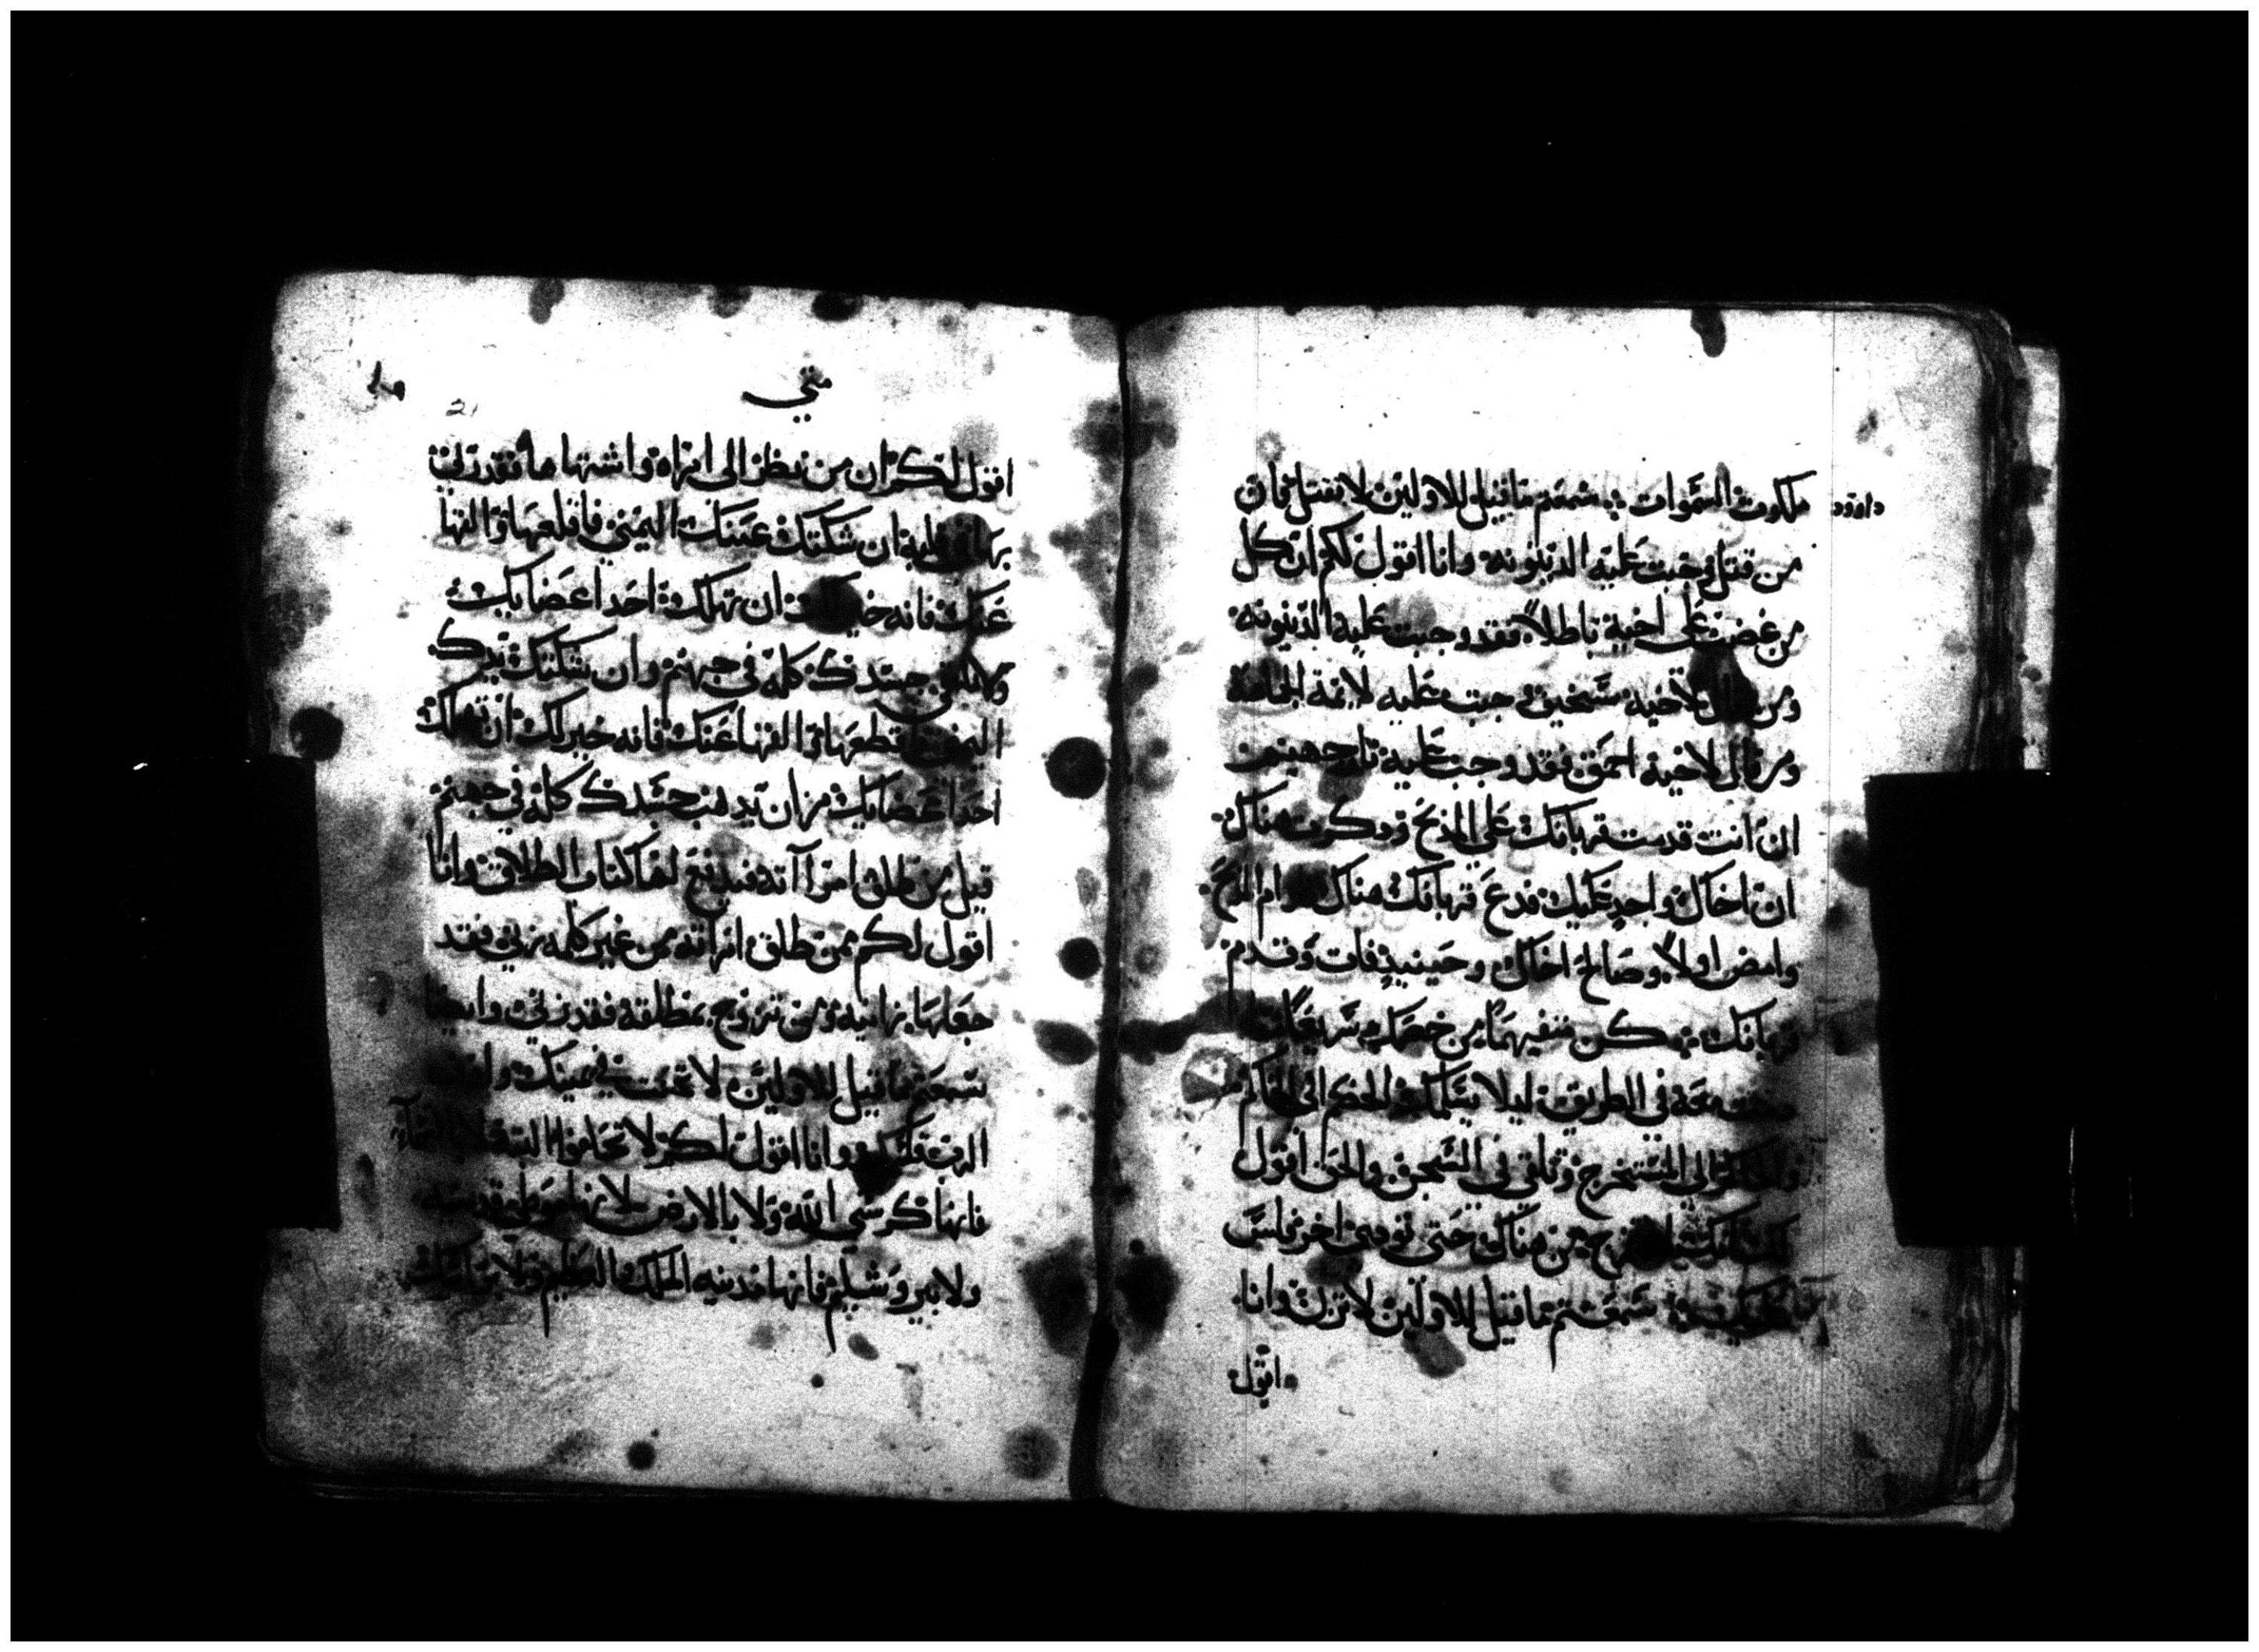 داوود
ملكوت السموات سمعتم ماقيل للاولين لا تقتل فان
من قتل وجبت عليه الدينونه وانا اقول لكم ان كل
من غضب على اخيه باطلاً فقد وجبت عليه الدينونه
ومن قال لاخيه سخيف وجبت عليه لايمة الجماعة
ومن قال لاخيه احمق فقد وجبت عليه نار جهنم
ان انت قدمت قربانك على المذبح وذكرت هناك
ان اخاك واجد عليك فدع قربانك هناك قدام المذبح
وامض اولاً وصالح اخاك وحينيذ فات وقدم
قربانك كن متفهماً من خصمك سريعاً
معه في الطريق ليلا يسلمك الخصم الى الحاكم
والحاكم الى المستخرج وتلقى في السجن والحق اقول
لك انك تخرج من هناك حتى توفي اخر فلس
عليك سمعتم ماقيل للاولين لا تزن وانا
اقول
متى
21
اقول لكم ان من نظر الى امراة واشتهاها فقد زنى
بها في قلبه ان شككتك عينك اليمنى فاقلعها والقها
عنك فانه خير لك ان تهلك احد اعضايك
ولا تلقي جسدك كله في جهنم وان شككتك يدك
اليمنى فاقطعها والقها عنك فانه خير لك ان تهلك
احد اعضايك من ان يذهب جسدك كله في جهنم
قيل من طلق امراته فيدفع لها كتاب الطلاق وانا
اقول لكم من طلق امراته من غير كلمه زنى فقد
جعلها زانيه ومن تزوج مطلقه فقد زنى وايضا
سمعتم ماقيل للاولين لا تحنث في يمينك واوف
الرب قسمك وانا اقول لكم لا تحلفوا البتة لا بالسماء
فانها كرسي الله ولا بالارض لانها موطي قدميه
ولا بيروشليم فانها مدينه الملك العظيم ولا براسك